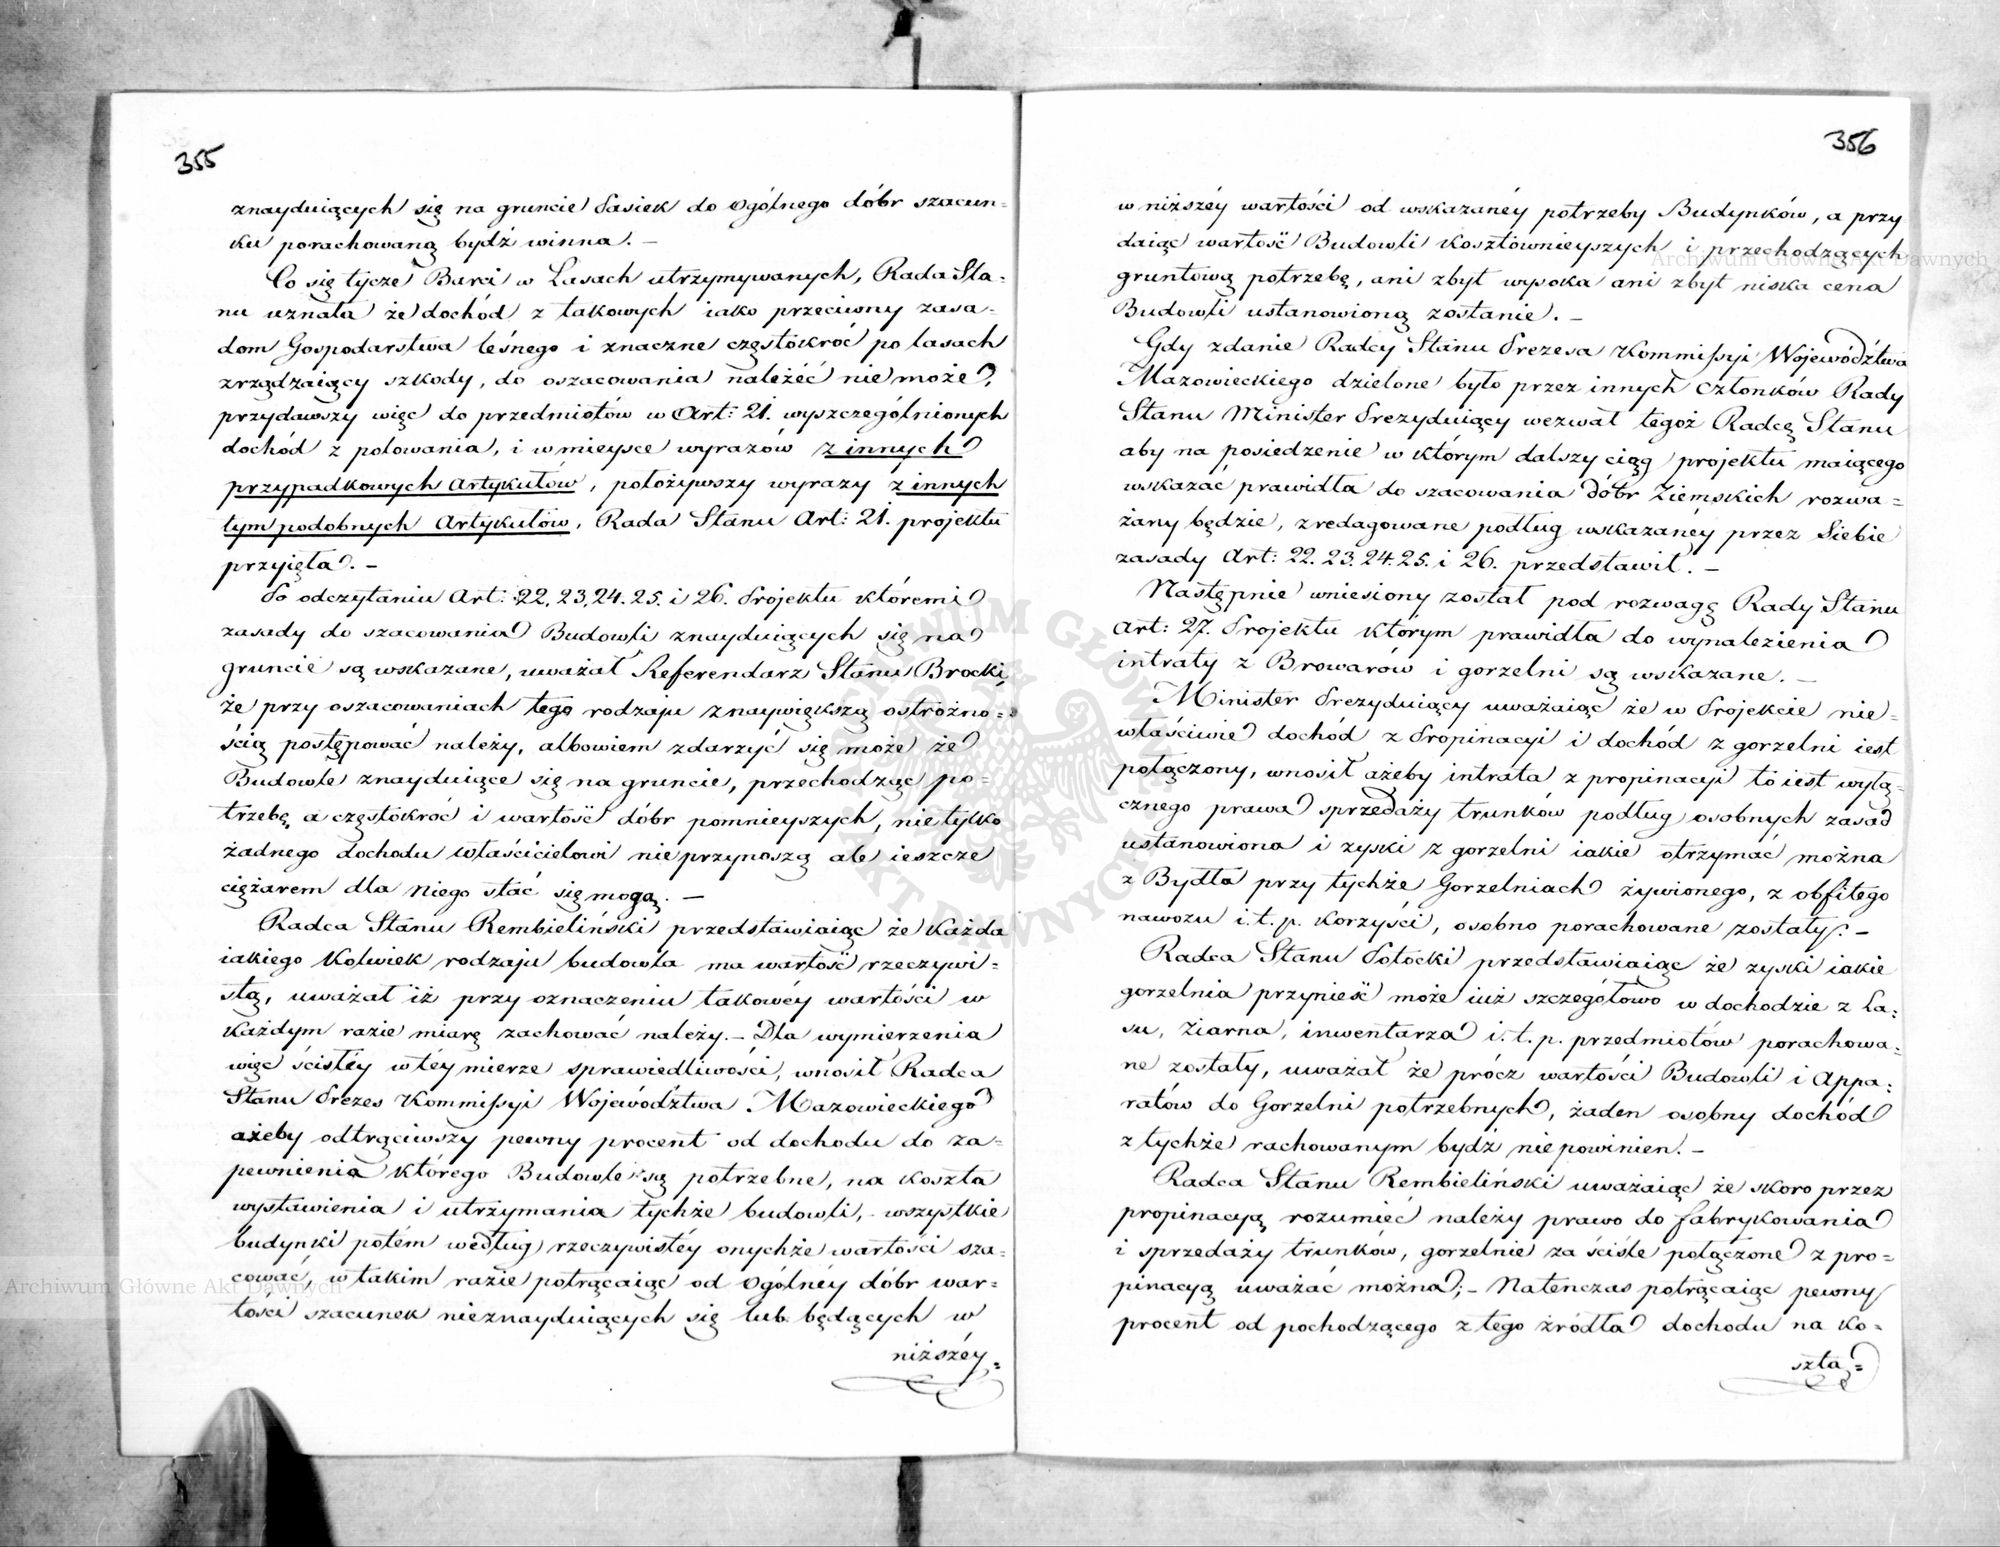 355
znayduiących się na gruncie Pasiek do ogólnego dóbr szacun-
ku porachowaną bydź winna. –
Co się tycze Barci w Lasach utrzymywanych, Rada Sta-
nu uznała że dochód z takowych iako przeciwny zasa-
dom Gospodarstwa leśnego i znaczne częstokróć po lasach
zrządzaiący szkody, do oszacowania należéć nie może,
przydawszy więc do przedmiotów w Art: 21. wyszczególnionych
dochód z polowania, i w mieysce wyrazów z innych
przypadkowych Artykułów, położywszy wyrazy z innych
tym podobnych Artykułów, Rada Stanu Art: 21. projektu
przyięła. –
Po odczytaniu Art: 22, 23, 24. 25. i 26. Projektu któremi
zasady do szacowania Budowli znayduiących się na
gruncie są wskazane, uważał Referendarz Stanu Brocki,
że przy oszacowaniach tego rodzaju znaywiększą ostrożno-
ścią postępować należy, albowiem zdarzyć się może że
Budowle znayduiące się na gruncie, przechodząc po-
trzebę, a częstokróć i wartość dóbr pomnieyszych, nie tylko
żadnego dochodu właścicielowi nieprzynoszą ale ieszcze
ciężarem dla niego stać się mogą. –
Radca Stanu Rembieliński przedstawiaiąc że każda
iakiego kolwiek rodzaju budowla ma wartość rzeczywi-
stą, uważał iż przy oznaczeniu takowéy wartości w
każdym razie miarę zachować należy. – Dla wymierzenia
więc ścisłéy w téy mierze sprawiedliwości, wnosił Radca
Stanu Prezes Kommissyi Województwa Mazowieckiego
ażeby odtrąciwszy pewny procent od dochodu do za-
pewnienia którego Budowle są potrzebne, na koszta
wystawienia i utrzymania tychże budowli, – wszystkie
budynki potém według rzeczywistéy onychże wartości sza-
cować, w takim razie potrącaiąc od ogólnéy dóbr war-
tości szacunek nieznayduiących się lub będących w
niższéy
356
w niższéy wartości od wskazanéy potrzeby Budynków, a przy
daiąc wartość Budowli kosztownieyszych i przechodzących
gruntową potrzebę, ani zbyt wysoka ani zbyt niska cena
Budowli ustanowioną zostanie. –
Gdy zdanie Radcy Stanu Prezesa Kommissyi Województwa
Mazowieckiego dzielone było przez innych członków Rady
Stanu Minister Prezyduiący wezwał tegoż Radcę Stanu
aby na posiedzenie w którym dalszy ciąg projektu maiącego
wskazać prawidła do szacowania dóbr Ziemskich rozwa-
żany będzie, zredagowane podług wskazanéy przez Siebie
zasady Art: 22. 23. 24. 25. i 26. przedstawił. –
Następnie wniesiony został pod rozwagę Rady Stanu
Art: 27. Projektu którym prawidła do wynalezienia
intraty z Browarów i gorzelni są wskazane. –
Minister Prezyduiący uważaiąc że w Projekcie nie-
właściwie dochód z Propinacyi i dochód z gorzelni iest
połączony, wnosił ażeby intrata z propinacyi to iest wyłą-
cznego prawa sprzedaży trunków podług osobnych zasad
ustanowiona i zyski z gorzelni iakie otrzymać można
z Bydła przy tychże Gorzelniach żywionego, z obfitego
nawozu i. t. p. korzyści, osobno porachowane zostały. –
Radca Stanu Potocki przedstawiaiąc że zyski iakie
gorzelnia przynieść może iuż szczegółowo w dochodzie z La-
su, ziarna, inwentarza i. t. p. przedmiotów porachowa-
ne zostały, uważał że prócz wartości Budowli i Appa-
ratów do Gorzelni potrzebnych, żaden osobny dochód
z tychże rachowanym bydź nie powinien. –
Radca Stanu Rembieliński uważaiąc że skoro przez
propinacyą rozumiéć należy prawo do fabrykowania
i sprzedaży trunków, gorzelnie za ściśle połączone z pro-
pinacyą uważać można; – Natenczas potrącaiąc pewny
procent od pochodzącego z tego źródła dochodu na ko-
szta
Archiwum Główne Akt Dawnych
Archiwum Główne Akt Dawnych
ARCHIWUM GŁÓWNE AKT DAWNYCH